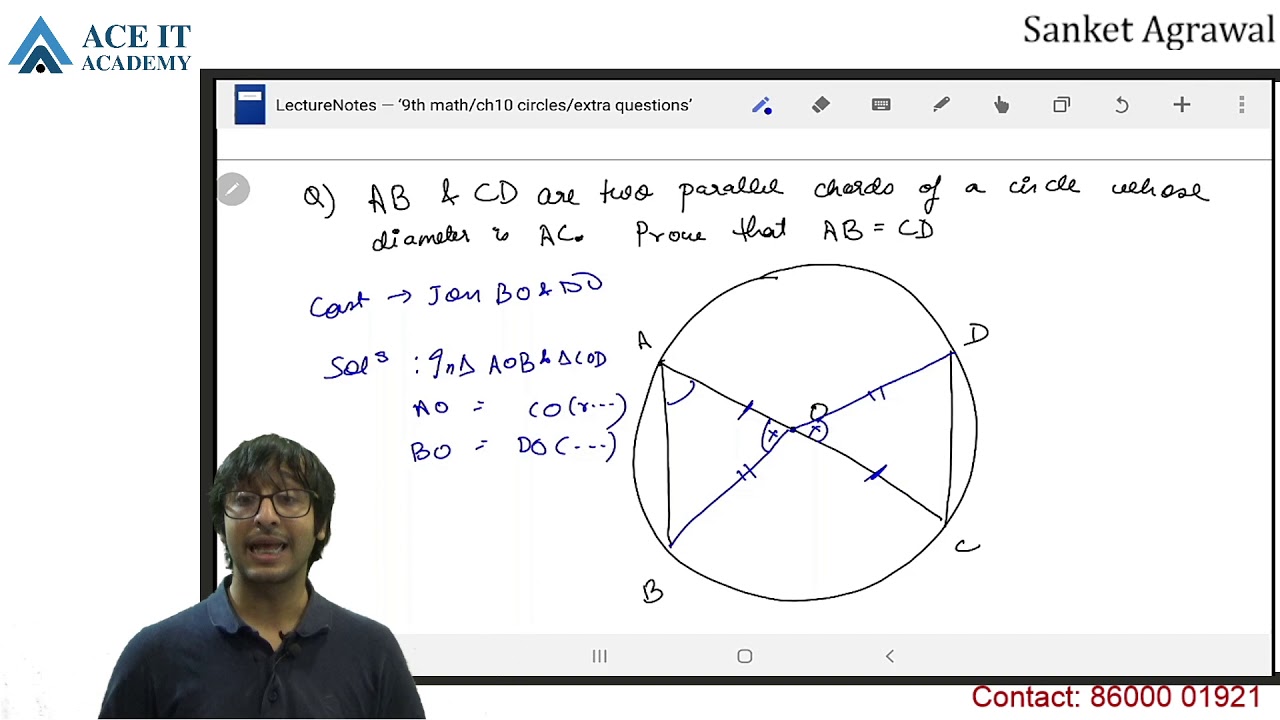 ACE IT
ACADEMY
Sanket Agrawal
LectureNotes — ‘9th math/ch10 circles/extra questions’
Q) AB & CD are two parallel chords of a circle whose
diameter is AC. Prove that AB = CD
Const → Join BO & DO
Solⁿ : In Δ AOB & Δ COD
AO = CO (r...)
BO = DO (...)
A
D
O
x x
C
B
Contact: 86000 01921